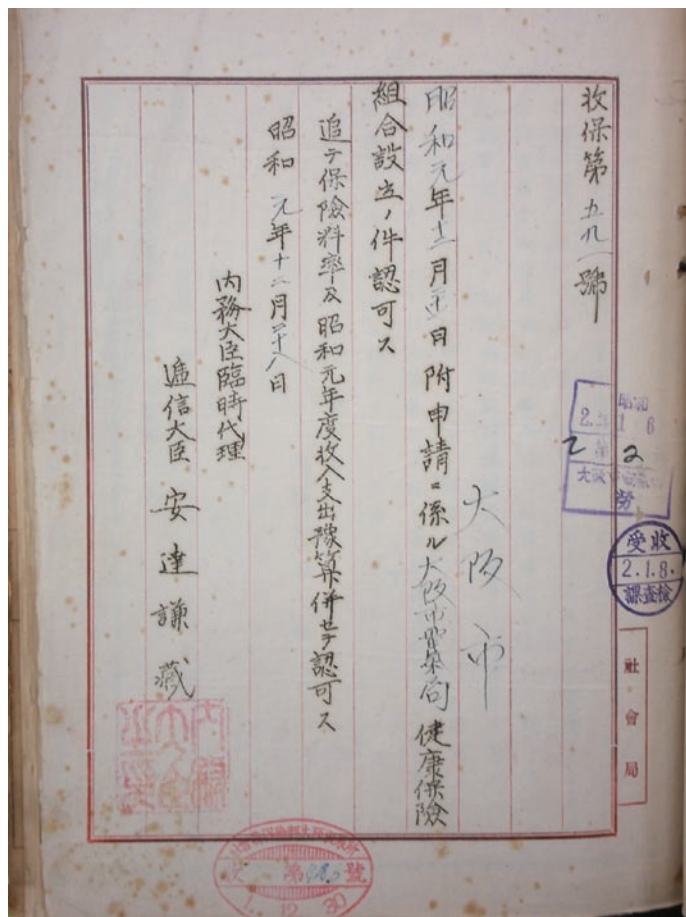 收保第五九一號
大阪市
昭和元年十二月 日附申請ニ係ル大阪市電氣局健康保險
組合設立ノ件認可ス
追テ保險料率及昭和元年度收入支出豫算併セテ認可ス
昭和元年十二月二十八日
内務大臣臨時代理
遞信大臣 安達謙藏
内務大臣之印
昭和
2.年 1 6
第 2
大阪市
勞
收受
2.1.8.
檢査課
社會局
收 第 號
1.12.30